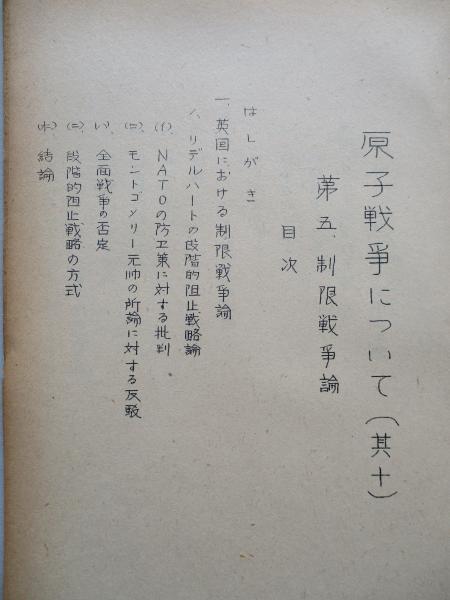 原子戦争について(其十)
第五、制限戦争論
目次
はしがき
一、英国における制限戦争論
1、リデルハートの段階的阻止戦略論
(イ)、NATOの防卫策に対する批判
(ロ)、モントゴメリー元帥の所論に対する反駁
(ハ)、全面戦争の否定
(ニ)、段階的阻止戦略の方式
(ホ)、結論